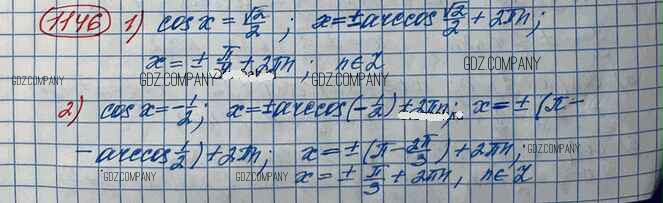 1146 1) cos x = √2/2; x = ± arccos √2/2 + 2πn;
x = ± π/4 + 2πn; n ∈ Z
GDZ.COMPANY GDZ.COMPANY GDZ.COMPANY GDZ.COMPANY
2) cos x = -1/2; x = ± arccos(-1/2) + 2πn; x = ± (π -
- arccos 1/2) + 2πn; x = ± (π - 2π/3) + 2πn;
GDZ.COMPANY GDZ.COMPANY GDZ.COMPANY GDZ.COMPANY
x = ± π/3 + 2πn, n ∈ Z